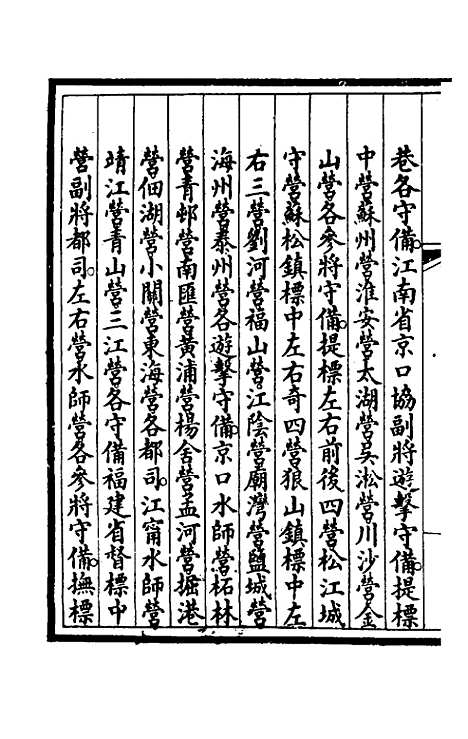 巷各守備。江南省京口協副將遊擊守備。提標
中營蘇州營淮安營太湖營吳淞營川沙營金
山營各參將守備。提標左右前後四營松江城
守營蘇松鎮標中左右奇四營狼山鎮標中左
右三營劉河營福山營江陰營廟灣營鹽城營
海州營泰州營各遊擊守備。京口水師營柘林
營青邨營南匯營黃浦營楊舍營孟河營掘港
營佃湖營小關營東海營各都司。江甯水師營
靖江營青山營三江營各守備。福建省督標中
營副將都司。左右營水師營各參將守備。撫標